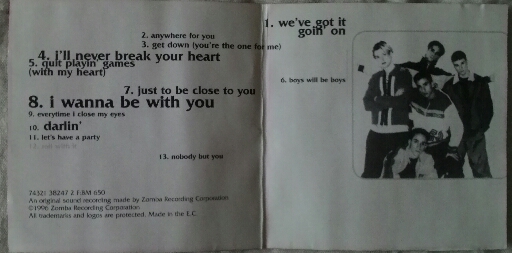 1. we've got it
goin' on
2. anywhere for you
3. get down (you're the one for me)
4. i'll never break your heart
5. quit playin' games
(with my heart)
6. boys will be boys
7. just to be close to you
8. i wanna be with you
9. everytime i close my eyes
10. darlin'
11. let's have a party
12.
13. nobody but you
74321 38247 2 F:BM 650
An original sound recording made by Zomba Recording Corporation
©1996 Zomba Recording Corporation
All trademarks and logos are protected. Made in the E.C.